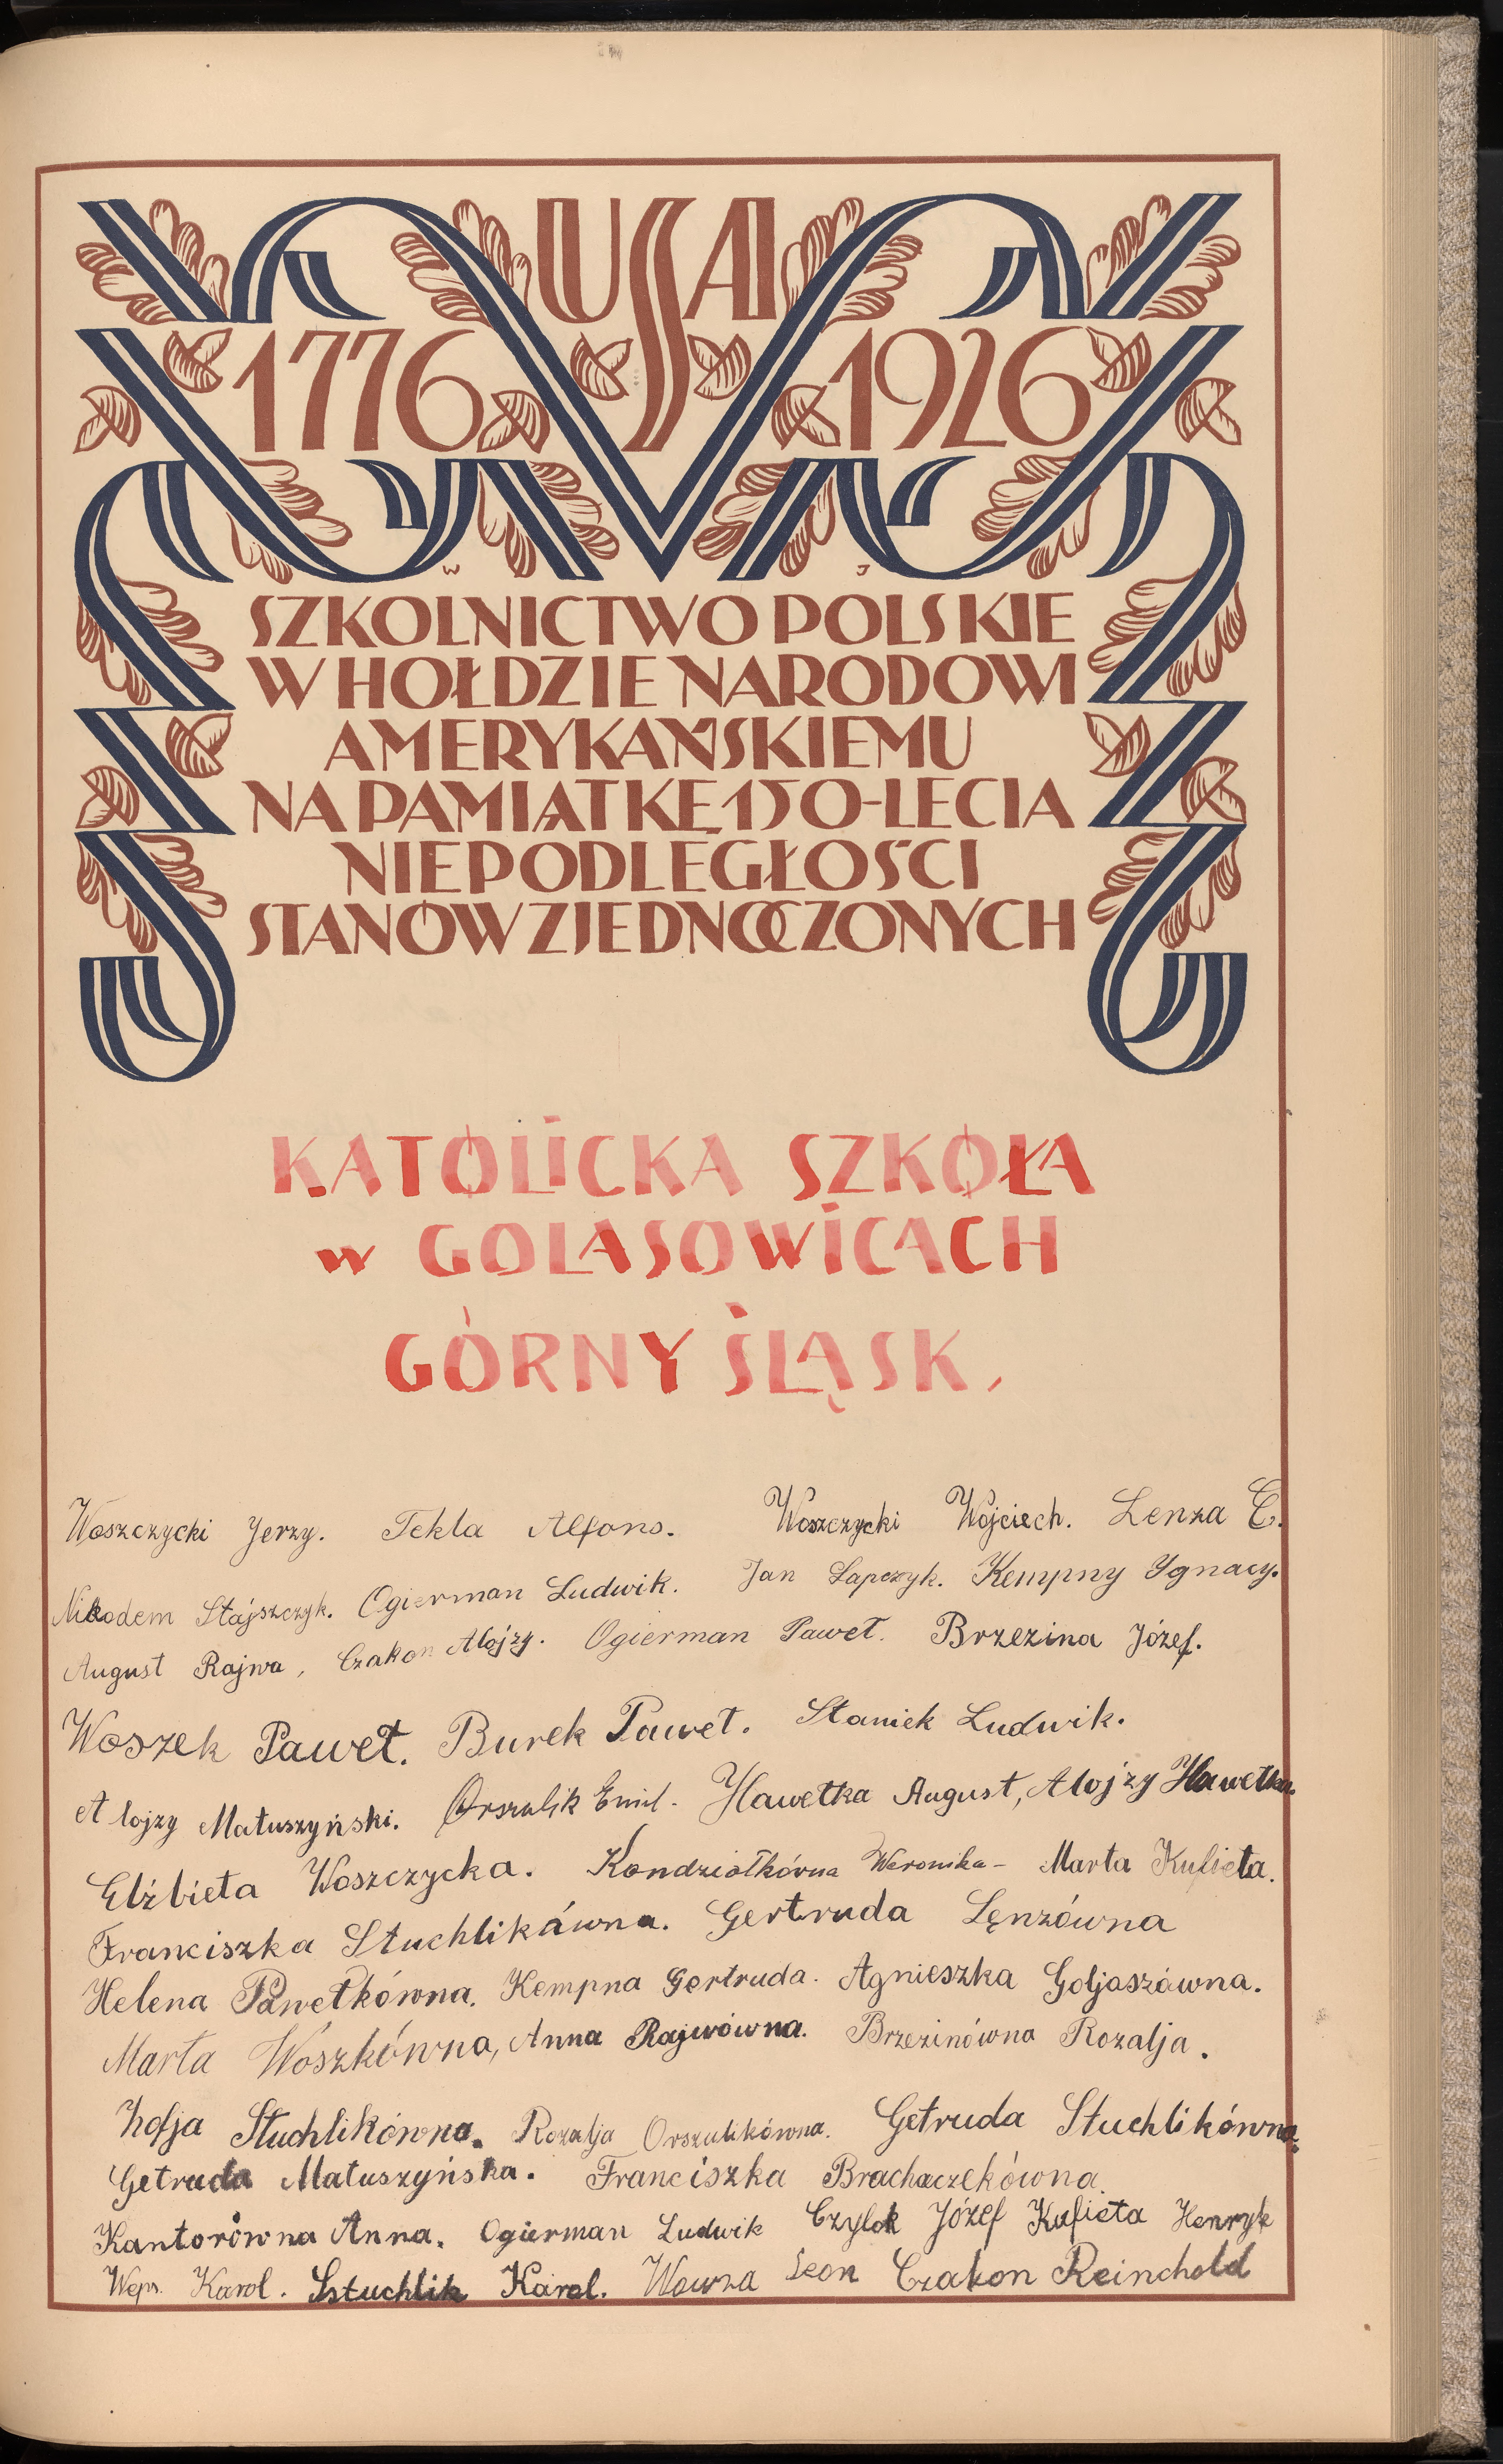 USA
1776 1926
W J
SZKOLNICTWO POLSKIE
W HOŁDZIE NARODOWI
AMERYKAŃSKIEMU
NA PAMIĄTKĘ 150-LECIA
NIEPODLEGŁOŚCI
STANÓW ZJEDNOCZONYCH
KATOLICKA SZKOŁA
w GOLASOWICACH
GÓRNY ŚLĄSK,
Woszczycki Jerzy. Tekla Alfons. Woszczycki Wojciech. Lenza E.
Nikodem Stajszczyk. Ogierman Ludwik. Jan Łapczyk. Kempny Ygnacy.
August Rajwa, Czakon Alojzy. Ogierman Paweł. Brzezina Józef.
Woszek Paweł. Burek Paweł. Staniek Ludwik.
Alojzy Matuszyński. Orszulik Emil. Hawełka August, Alojzy Hawełka.
Elżbieta Woszczycka. Kondziołkówna Weronika - Marta Kufieta.
Franciszka Stuchlikówna. Gertruda Lęnzówna
Helena Pawełkówna. Kempna Gertruda. Agnieszka Goljaszówna.
Marta Woszkówna, Anna Rajwówna. Brzezinówna Rozalja.
Zofja Stuchlikówna. Rozalja Orszulikówna. Getruda Stuchlikówna.
Getruda Matuszyńska. Franciszka Brachaczekówna.
Kantorówna Anna. Ogierman Ludwik Czylok Józef Kufieta Henryk
Karol. Sstuchlik Karol. Wawrza Leon Czakon Reinchold